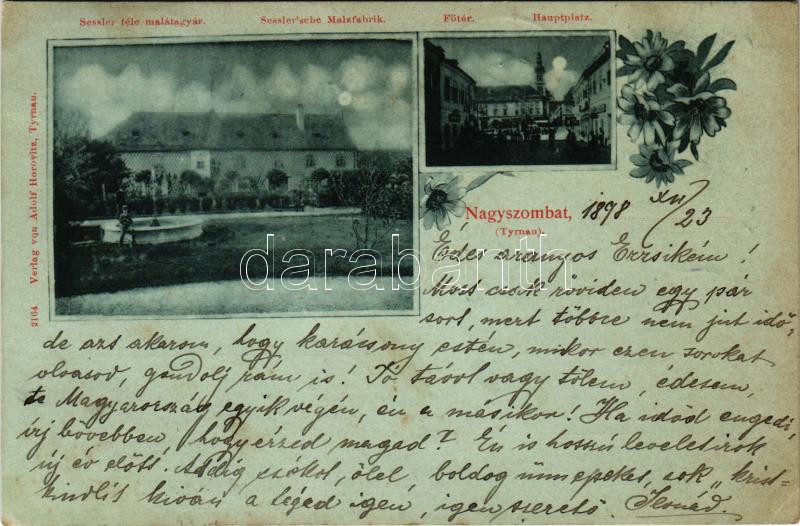 Sessler féle malátagyár. Sessler'sche Malzfabrik. Főtér. Hauptplatz.
2164 Verlag von Adolf Horovitz, Tyrnau.
Nagyszombat, 1898 XII/23
(Tyrnau).
darabanth
Édes aranyos Erzsikém!
Most csak röviden egy pár
sort, mert többre nem jut idő,
de azt akarom, hogy karácsony estén, mikor ezen sorokat
olvasod, gondolj rám is! Jó távol vagy tőlem, édesem,
te Magyarország egyik végén, én a másikon! Ha időd engedi,
írj bővebben, hogy érzed magad? Én is hosszú levelet írok
új év előtt. Addig csókol, ölel, boldog ünnepeket, sok „krist-
kindlit kiván a téged igen, igen szerető Ilonád.